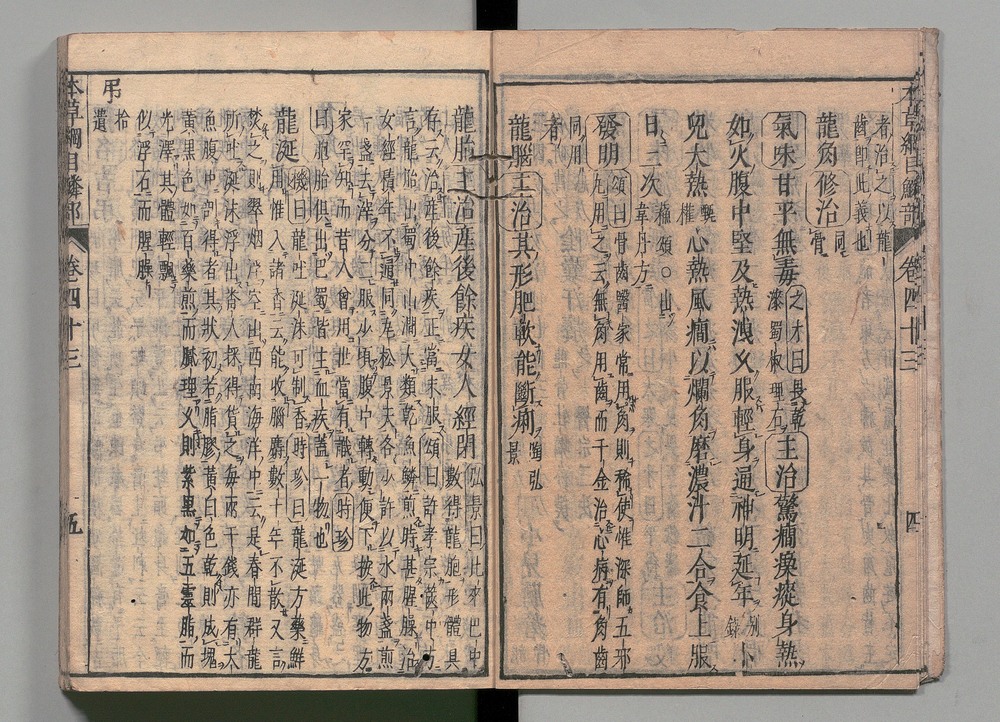 者治之以龍
齒即此義也
龍角修治同骨
氣味甘平無毒之才曰畏乾漆蜀椒理石主治驚癇瘈瘲身熱
如火腹中堅及熱洩久服輕身通神明延年別錄小
兒大熱甄權心熱風癇以爛角磨濃汁二合食上服
日二次蘓頌○出韋丹方
發明頌曰骨齒醫家常用角則稀使惟深師五邪
丸用之云無角用齒而千金治心病有角齒
同用
者
龍腦主治其形肥軟能斷痢陶弘景
龍胎主治產後餘疾女人經閉弘景曰此來巴中
數得龍胞形體具
存云治產後餘疾正當末服頌曰許孝宗篋中方
言龍胎出蜀中山澗大類乾魚鱗煎時甚腥臊治
女經積年不通同瓦松景天各少許以水兩盞煎
一盞去滓分二服少頃腹中轉動便下按此物方
家罕知而昔人曾用世當有識者時珍
曰胞胎俱出巴蜀皆主血疾蓋一物也
龍涎機曰龍吐涎沫可制香時珍曰龍涎方藥鮮
用惟入諸香云能收腦麝數十年不散又言
焚之則翠烟浮空出西南海洋中云是春間群龍
所吐涎沫浮出番人採得貨之每兩千錢亦有大
魚腹中剖得者其狀初若脂膠黃白色乾則成塊
黃黑色如百藥煎而膩理久則紫黑如五靈脂而
光澤其體輕飄
似浮石而腥臊
弔拾遺
本草綱目鱗部 卷四十三 四
本草綱目鱗部 卷四十三 五